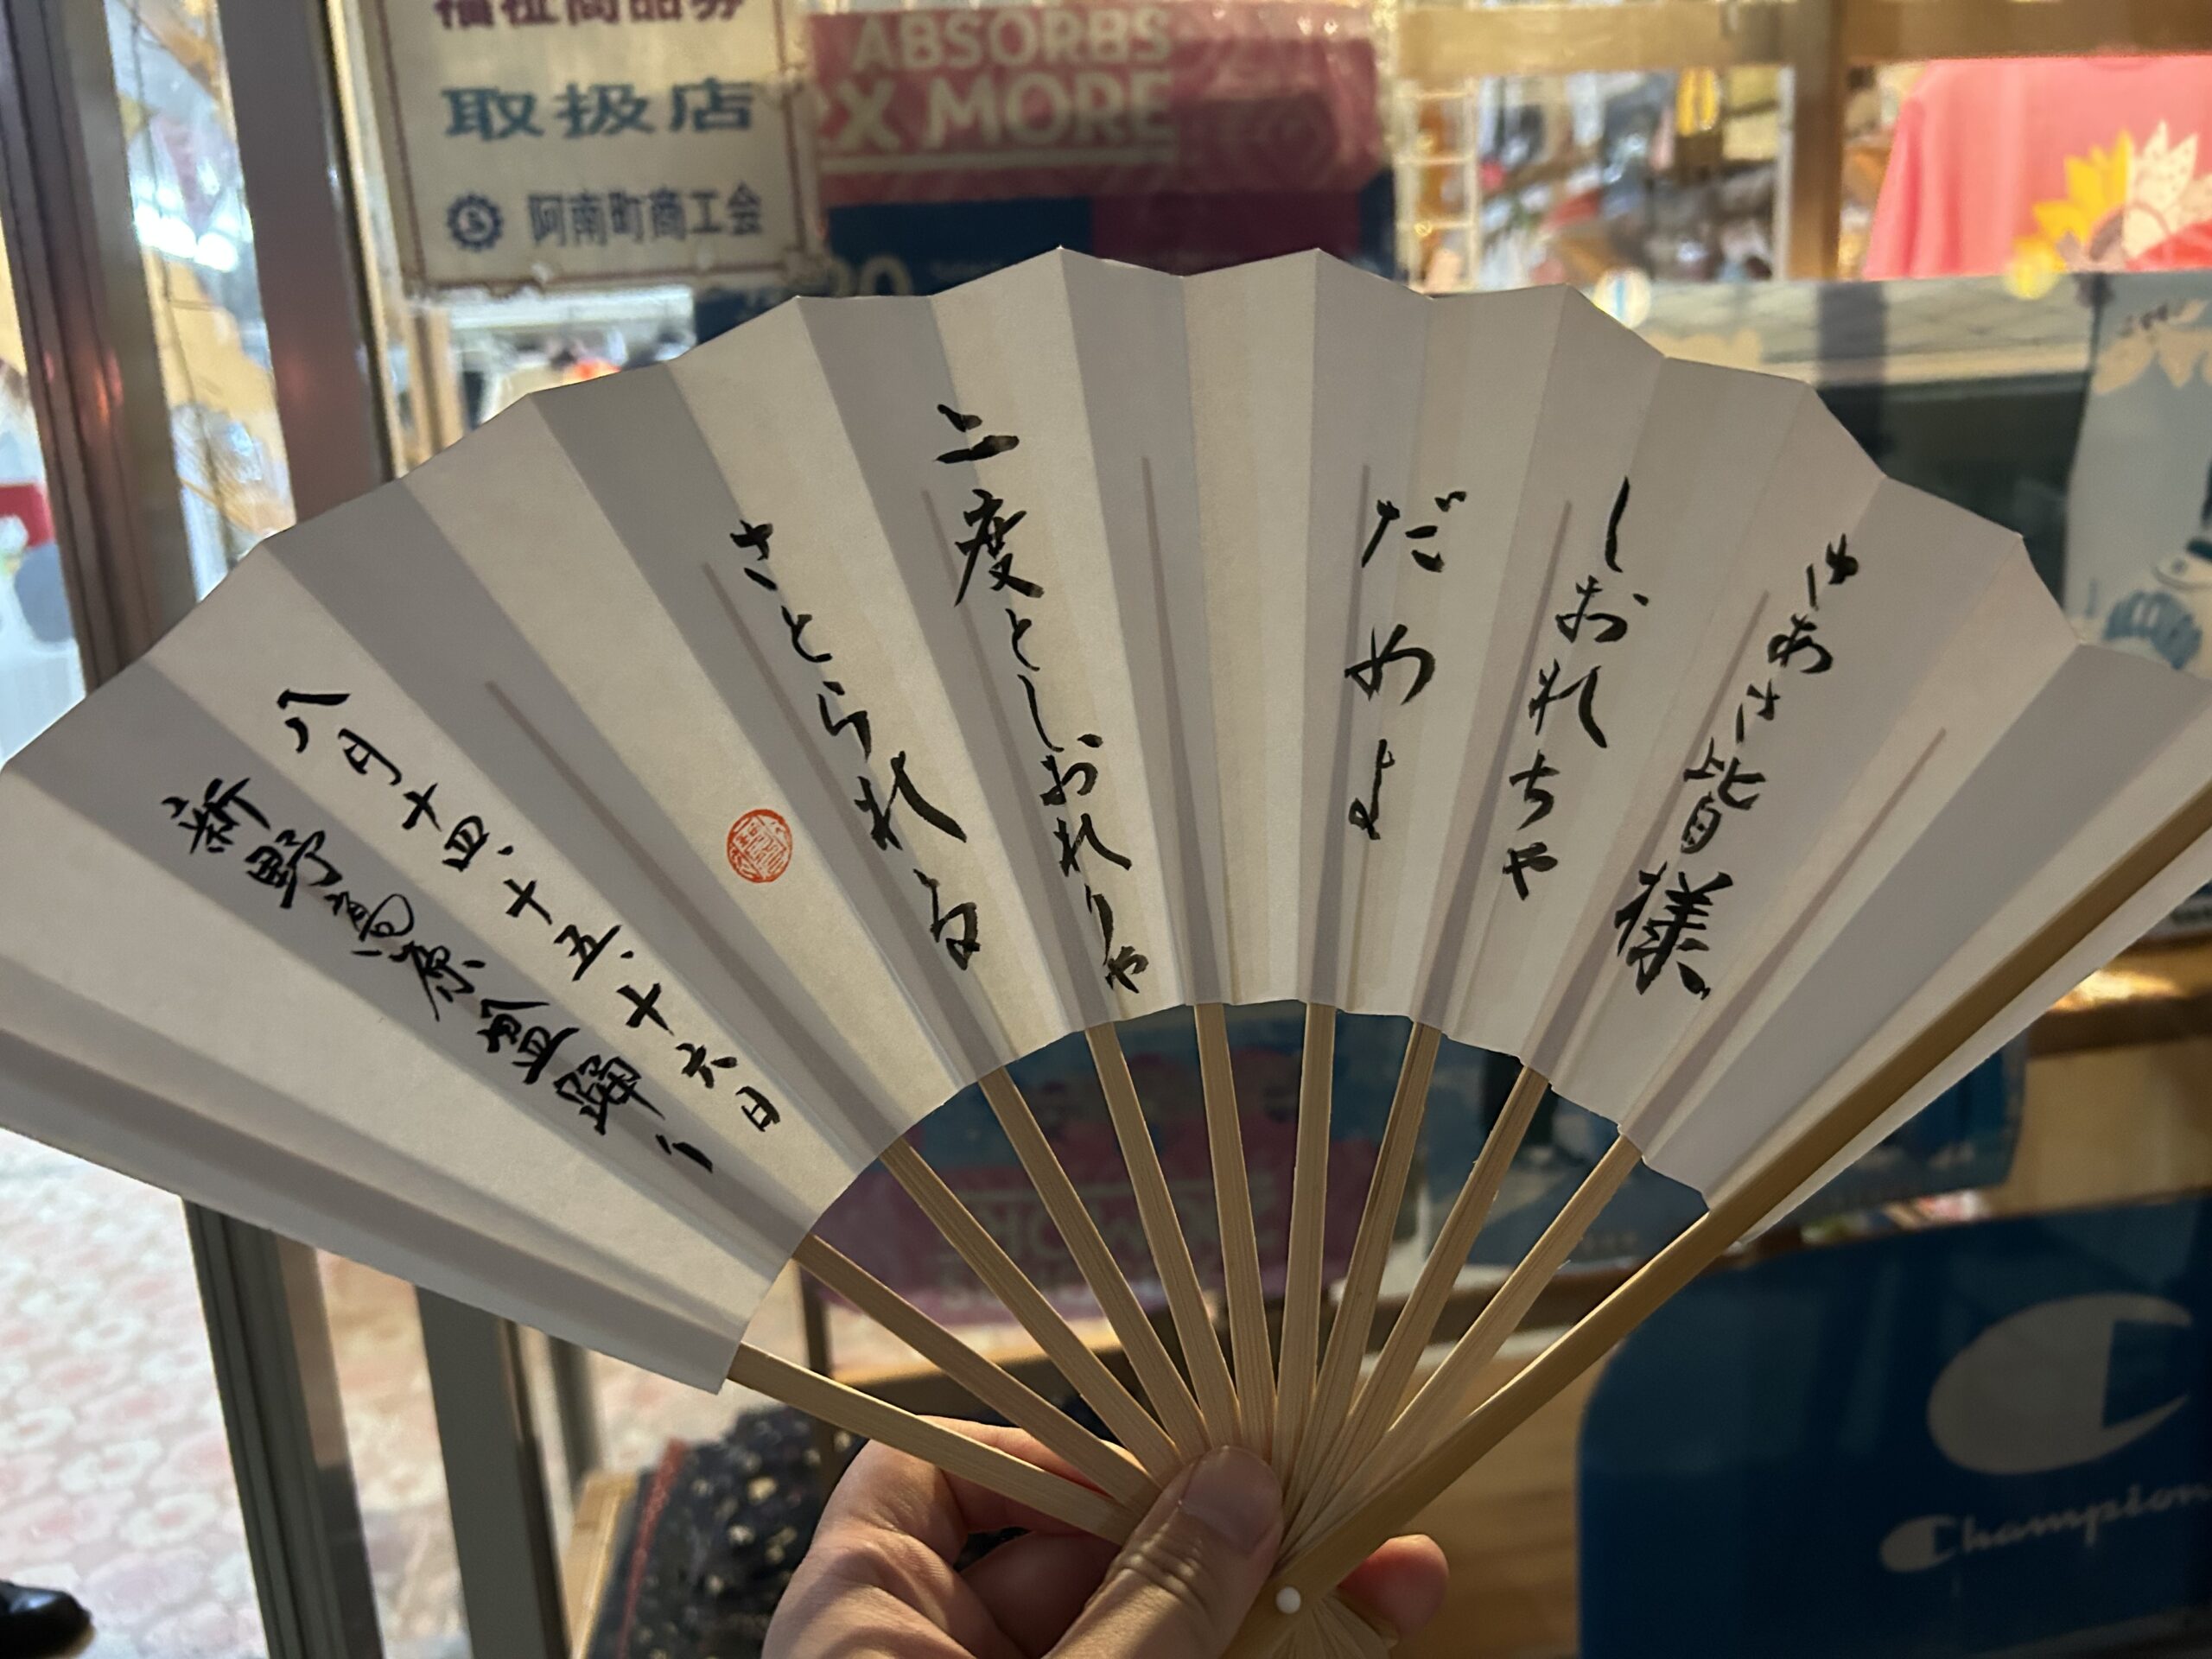 福祉商品券
取扱店
阿南町商工会
ABSORBS
X MORE
皆様
しおれちや
だめよ
二度としおれりや
さとられる
八月十四、十五、十六日
新野高原盆踊り
Champion